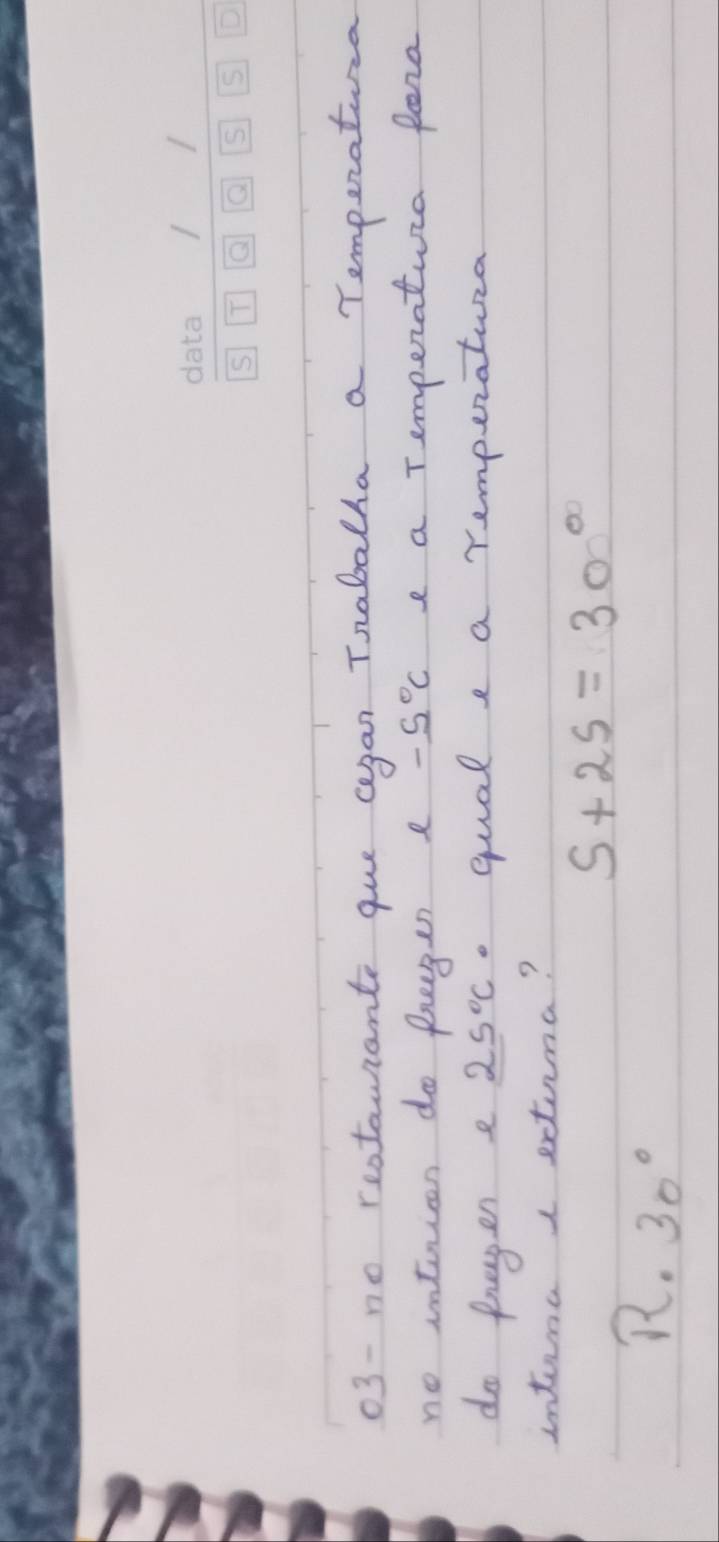 data / /
S T Q Q S S D
03- no restaurante que cezar Trabalha a Temperatura
no interior do freezer e -5°C e a Temperatura fora
do freezer e 25°C. qual e a Temperatura
interna e externa?
5+25=30°
R. 30°